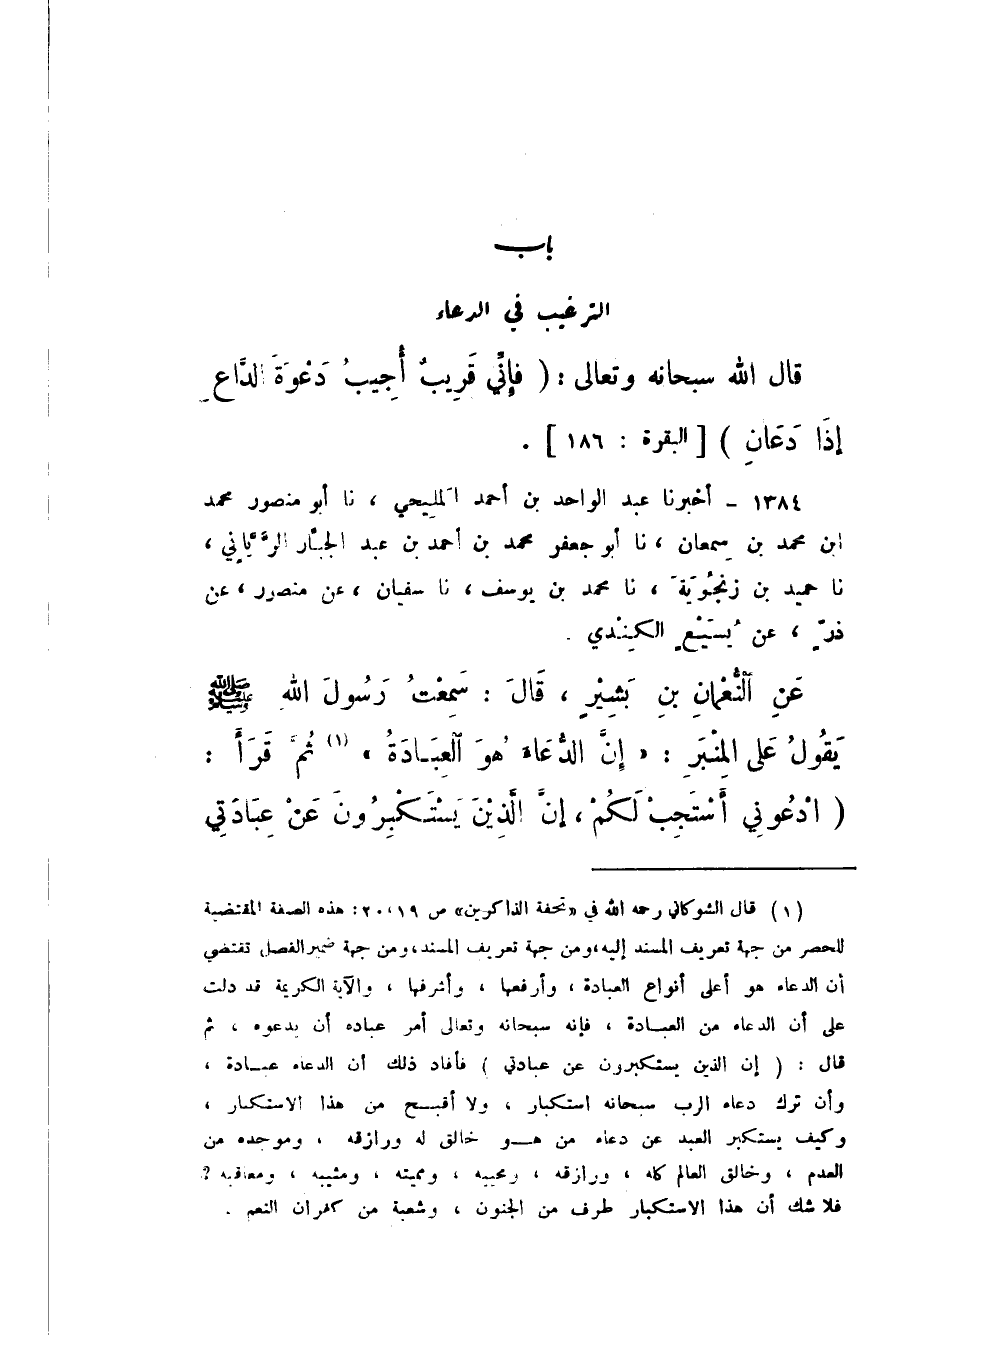 باب
الترغيب في الدعاء
قال الله سبحانه وتعالى : ( فَإِنِّي قَرِيبٌ أُجِيبُ دَعْوَةَ الدَّاعِ
إِذَا دَعَانِ ) [ البقرة : ١٨٦ ] .
١٣٨٤ - أخبرنا عبد الواحد بن أحمد المَليحي ، نا أبو منصور محمد
ابن محمد بن سِمعان ، نا أبو جعفر محمد بن أحمد بن عبد الجبّار الرَّيّاني ،
نا حميد بن زنجُويَةَ ، نا محمد بن يوسف ، نا سفيان ، عن منصور ، عن
ذرٍّ ، عن يُسَيْعٍ الكِنْدي .
عَنِ النُّعْمَانِ بنِ بَشِيْرٍ ، قَالَ : سَمِعْتُ رَسُولَ اللهِ ﷺ
يَقُولُ عَلى المِنْبَرِ : « إِنَّ الدُّعَاءَ هُوَ العِبَـادَةُ » (١) ثُمَّ قَرَأَ :
( ادْعُونِي أَسْتَجِبْ لَكُمْ ، إِنَّ الَّذِيْنَ يَسْتَكْبِرُونَ عَنْ عِبَادَتِي
(١) قال الشوكاني رحمه الله في «تحفة الذاكرين» ص ١٩،٢٠ : هذه الصفة المقتضية
للحصر من جهة تعريف المسند إليه، ومن جهة تعريف المسند، ومن جهة ضمير الفصل تقتضي
أن الدعاء هو أعلى أنواع العبادة ، وأرفعها ، وأشرفها ، والآية الكريمة قد دلت
على أن الدعاء من العبــادة ، فإنه سبحانه وتعالى أمر عباده أن يدعوه ، ثم
قال : ( إن الذين يستكبرون عن عبادتي ) فأفاد ذلك أن الدعاء عبــادة ،
وأن ترك دعاء الرب سبحانه استكبار ، ولا أقبــح من هذا الاستكبار ،
وكيف يستكبر العبد عن دعاء من هــو خالق له ورازقه ، وموجده من
العدم ، وخالق العالم كله ، ورازقه ، ومحييه ، ومميته ، ومثيبه ، ومعاقبه ؟
فلا شك أن هذا الاستكبار طرف من الجنون ، وشعبة من كفران النعم .